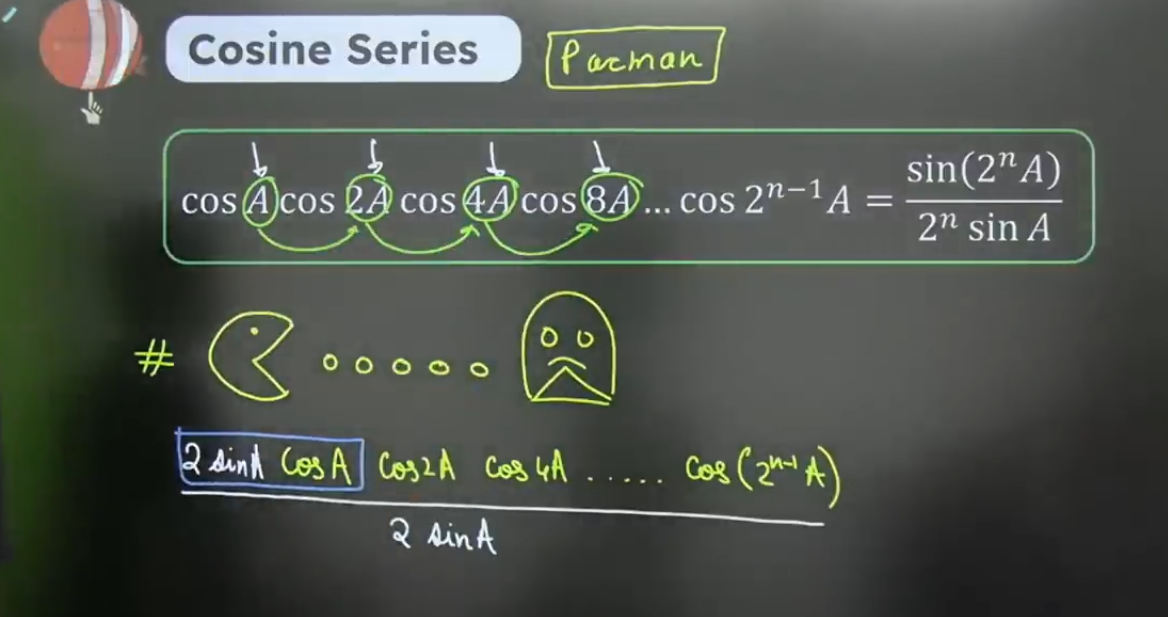 Cosine Series
Pacman
cos A cos 2A cos 4A cos 8A ... cos 2ⁿ⁻¹A = sin(2ⁿA) / 2ⁿ sin A
#
2 sinA cosA cos2A cos4A ...... cos(2ⁿ⁻¹A)
2 sinA